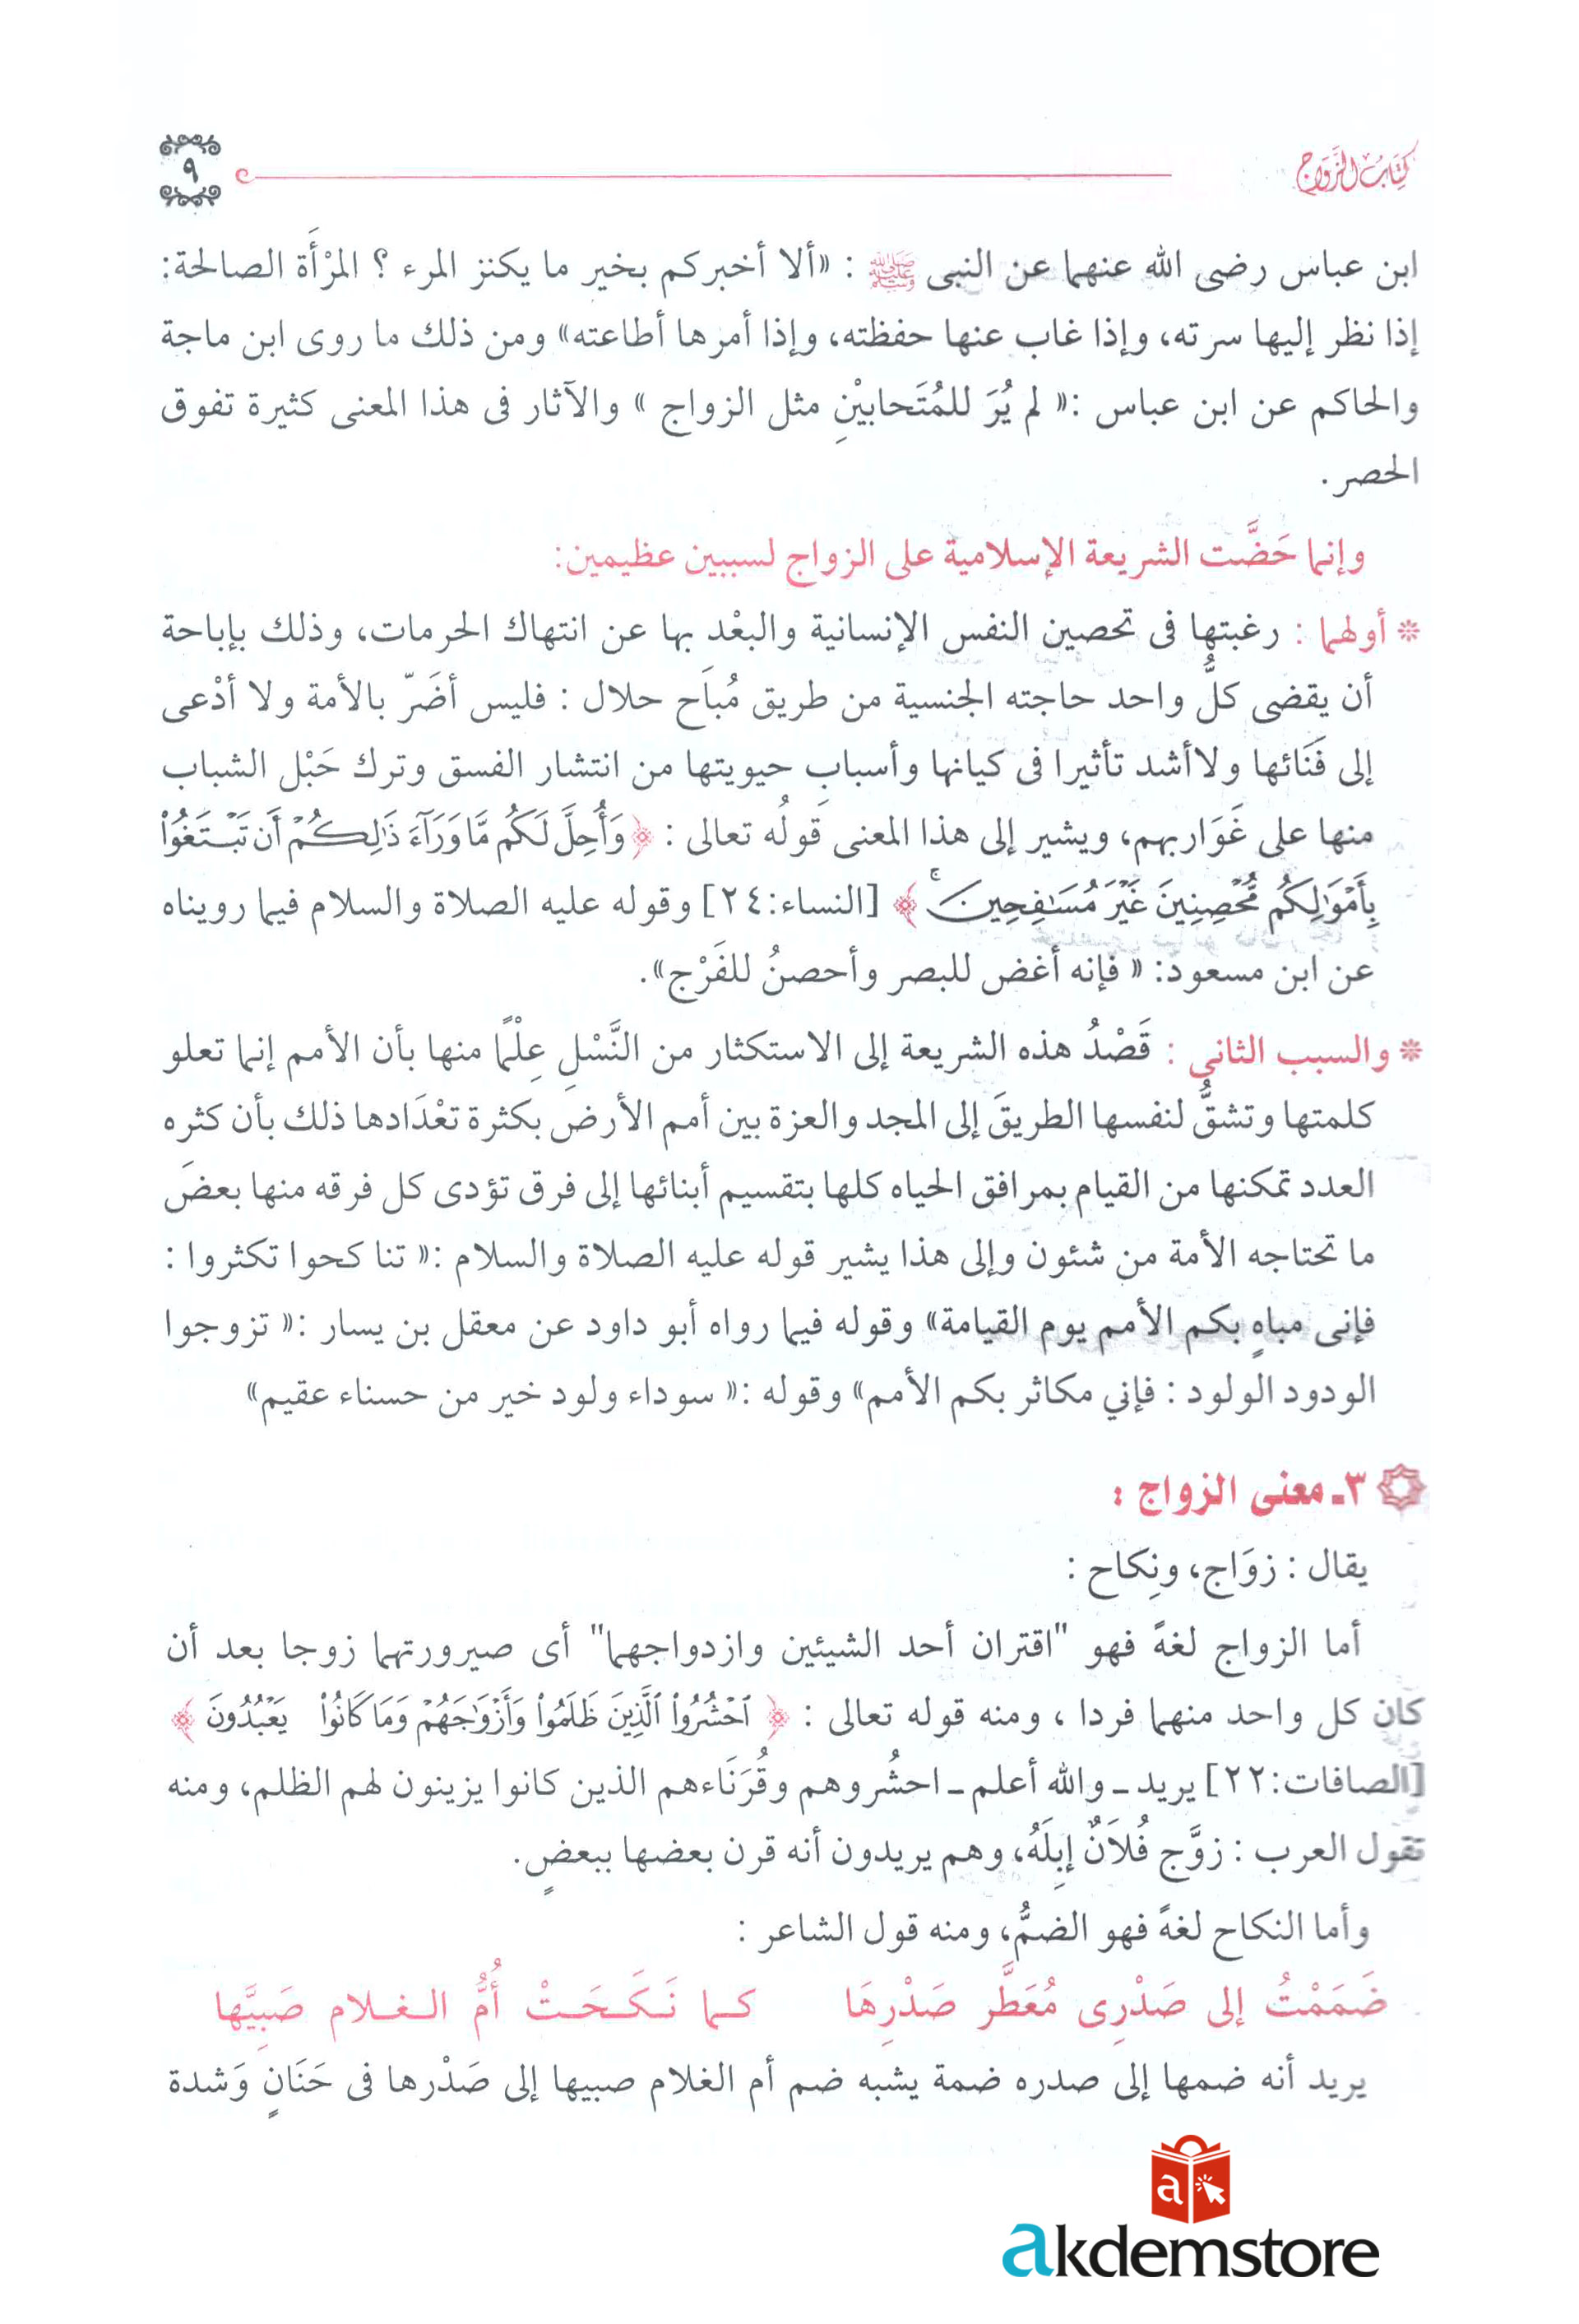 كتاب الزواج
٩
ابن عباس رضى الله عنهما عن النبى ﷺ : «ألا أخبركم بخير ما يكنز المرء ؟ المرْأَة الصالحة:
إذا نظر إليها سرته، وإذا غاب عنها حفظته، وإذا أمرها أطاعته» ومن ذلك ما روى ابن ماجة
والحاكم عن ابن عباس :« لم يُرَ للمُتَحابيْنِ مثل الزواج » والآثار فى هذا المعنى كثيرة تفوق
الحصر.
وإنما حَضَّت الشريعة الإسلامية على الزواج لسببين عظيمين:
* أولهما : رغبتها فى تحصين النفس الإنسانية والبعْد بها عن انتهاك الحرمات، وذلك بإباحة
أن يقضى كلُّ واحد حاجته الجنسية من طريق مُبَاح حلال : فليس أضَرّ بالأمة ولا أدْعى
إلى فَنَائها ولاأشد تأثيرا فى كيانها وأسباب حيويتها من انتشار الفسق وترك حَبْل الشباب
منها على غَوَاربهم، ويشير إلى هذا المعنى قَولُه تعالى : ﴿ وَأُحِلَّ لَكُم مَّا وَرَآءَ ذَٰلِكُمْ أَن تَبْتَغُوا۟
بِأَمْوَٰلِكُم مُّحْصِنِينَ غَيْرَ مُسَٰفِحِينَ ۚ ﴾ [النساء:٢٤] وقوله عليه الصلاة والسلام فيما رويناه
عن ابن مسعود: « فإنه أغض للبصر وأحصنُ للفَرْج».
* والسبب الثانى : قَصْدُ هذه الشريعة إلى الاستكثار من النَّسْلِ عِلْمًا منها بأن الأمم إنما تعلو
كلمتها وتشقُّ لنفسها الطريقَ إلى المجد والعزة بين أمم الأرض بكثرة تعْدَادها ذلك بأن كثره
العدد تمكنها من القيام بمرافق الحياه كلها بتقسيم أبنائها إلى فرق تؤدى كل فرقه منها بعضَ
ما تحتاجه الأمة من شئون وإلى هذا يشير قوله عليه الصلاة والسلام :« تناكحوا تكثروا :
فإنى مباهٍ بكم الأمم يوم القيامة» وقوله فيما رواه أبو داود عن معقل بن يسار :« تزوجوا
الودود الولود : فإني مكاثر بكم الأمم» وقوله :« سوداء ولود خير من حسناء عقيم»
٣ـ معنى الزواج :
يقال : زوَاج، ونِكاح :
أما الزواج لغةً فهو "اقتران أحد الشيئين وازدواجهما" أى صيرورتهما زوجا بعد أن
كان كل واحد منهما فردا ، ومنه قوله تعالى : ﴿ ٱحْشُرُوا۟ ٱلَّذِينَ ظَلَمُوا۟ وَأَزْوَٰجَهُمْ وَمَا كَانُوا۟ يَعْبُدُونَ ﴾
[الصافات:٢٢] يريد ـ والله أعلم ـ احشُروهم وقُرَنَاءهم الذين كانوا يزينون لهم الظلم، ومنه
تقول العرب : زوَّج فُلاَنٌ إبِلَهُ، وهم يريدون أنه قرن بعضها ببعضٍ.
وأما النكاح لغةً فهو الضمُّ، ومنه قول الشاعر :
ضَمَمْتُ إلى صَدْرِى مُعَطَّر صَدْرِهَا كما نَكَحَتْ أُمُّ الغلام صَبِيَّها
يريد أنه ضمها إلى صدره ضمة يشبه ضم أم الغلام صبيها إلى صَدْرها فى حَنَانٍ وَشدة
a
akdemstore